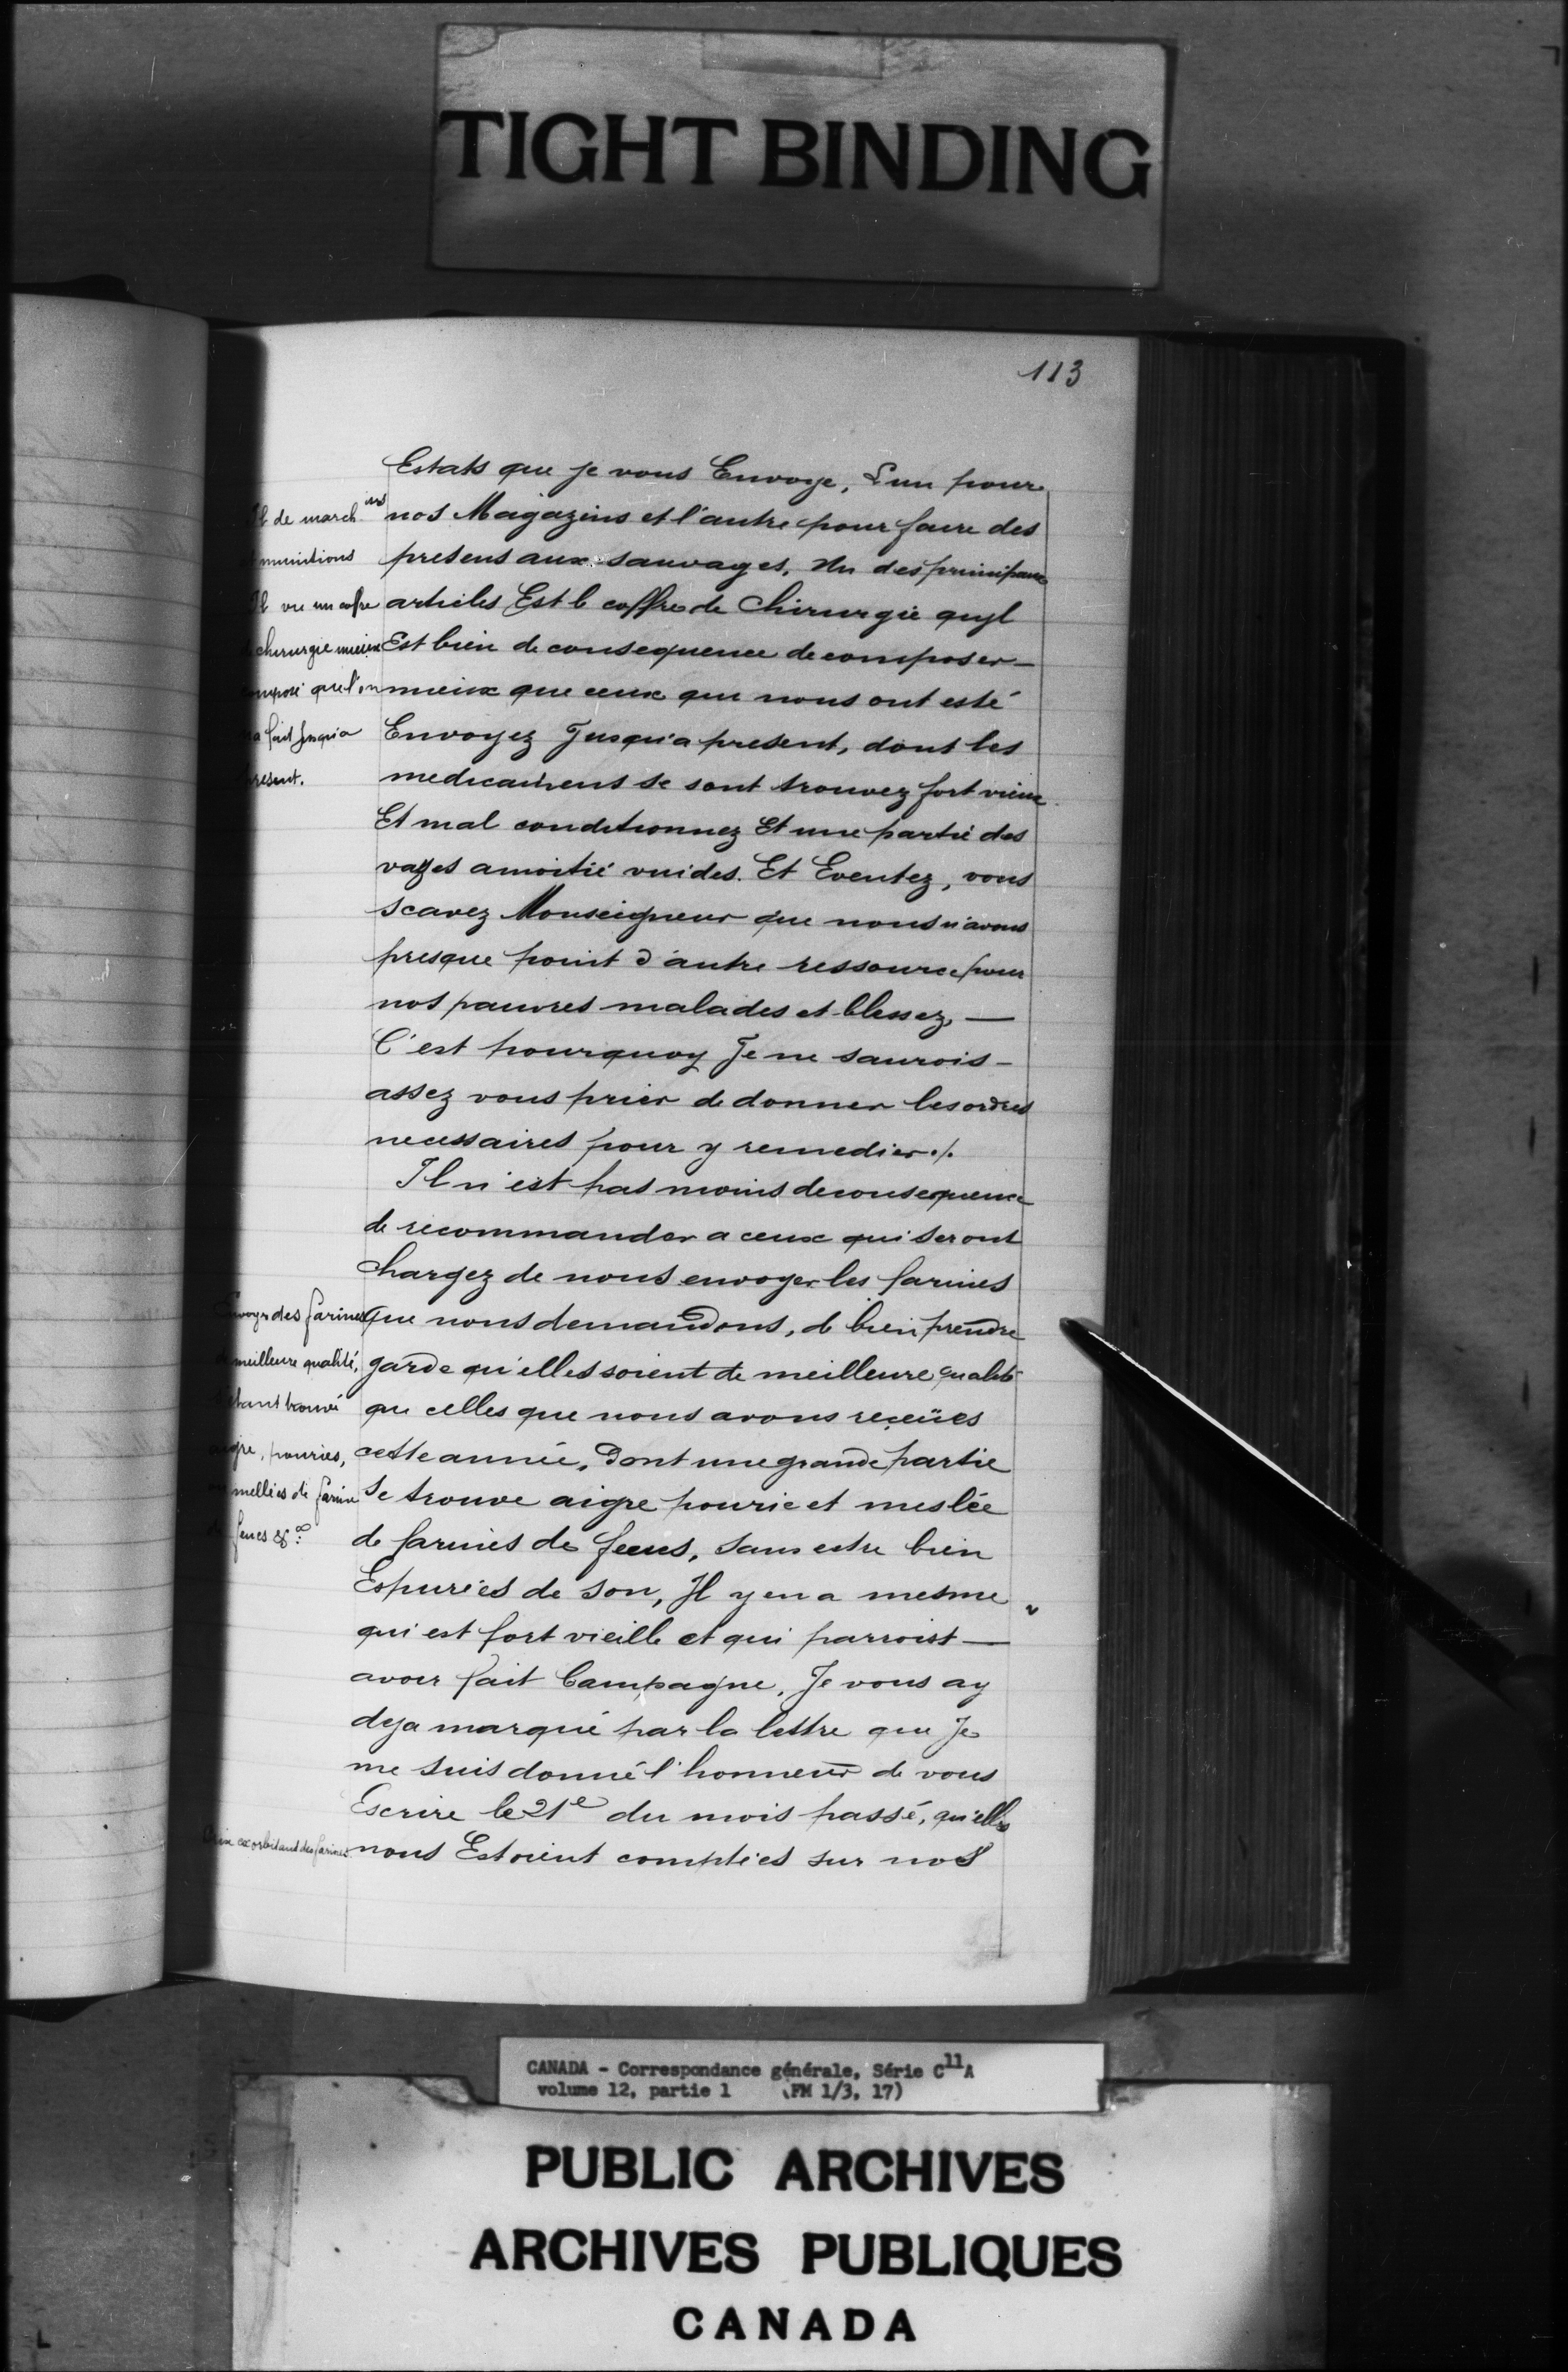 TIGHT BINDING
113
Estats que je vous Envoye, L'un pour
nos Magazins et l'autre pour faire des
presens aux sauvages, Un des principaux
articles Est le coffre de Chirurgie quyl
Est bien de consequence de composer —
mieux que ceux que nous ont esté
Envoyez Jusqu'a present, dont les
medicamens se sont trouvez fort vieux
Et mal conditionnez Et une partie des
vazes amoitié vuides. Et Eventez, vous
scavez Monseigneur que nous n'avons
presque point d'autre ressource pour
nos pauvres malades et blessez, —
C'est pourquoy Je ne saurois —
assez vous prier de donner les ordres
necessaires pour y remedier ./.
Il n'est pas moins de consequence
de recommander a ceux qui seront
Chargez de nous envoyer les farines
que nous demandons, de bien prendre
garde qu'elles soient de meilleure qualité
que celles que nous avons reçeües
cette année, Dont une grande partie
se trouve aigre pourie et meslée
de farines de feves, sans estre bien
Espurées de son, Il y en a mesme
qui est fort vieille et qui parroist —
avoir fait Campagne, Je vous ay
deja marqué par la lettre que Je
me suis donné l'honneur de vous
Escrire le 21e du mois passé, qu'elles
nous Estoient comptées sur nos
de march ises
munitions
Il vu un cofre
chirurgie mieux
composé que l'on
a fait jusqu'a
present.
envoyer des farines
meilleure qualité,
estant trouvé
aigre, pouries,
mellées de farine
feves &a
Prix exorbitant des farines.
CANADA - Correspondance générale, Série C11A
volume 12, partie 1 (FM 1/3, 17)
PUBLIC ARCHIVES
ARCHIVES PUBLIQUES
CANADA